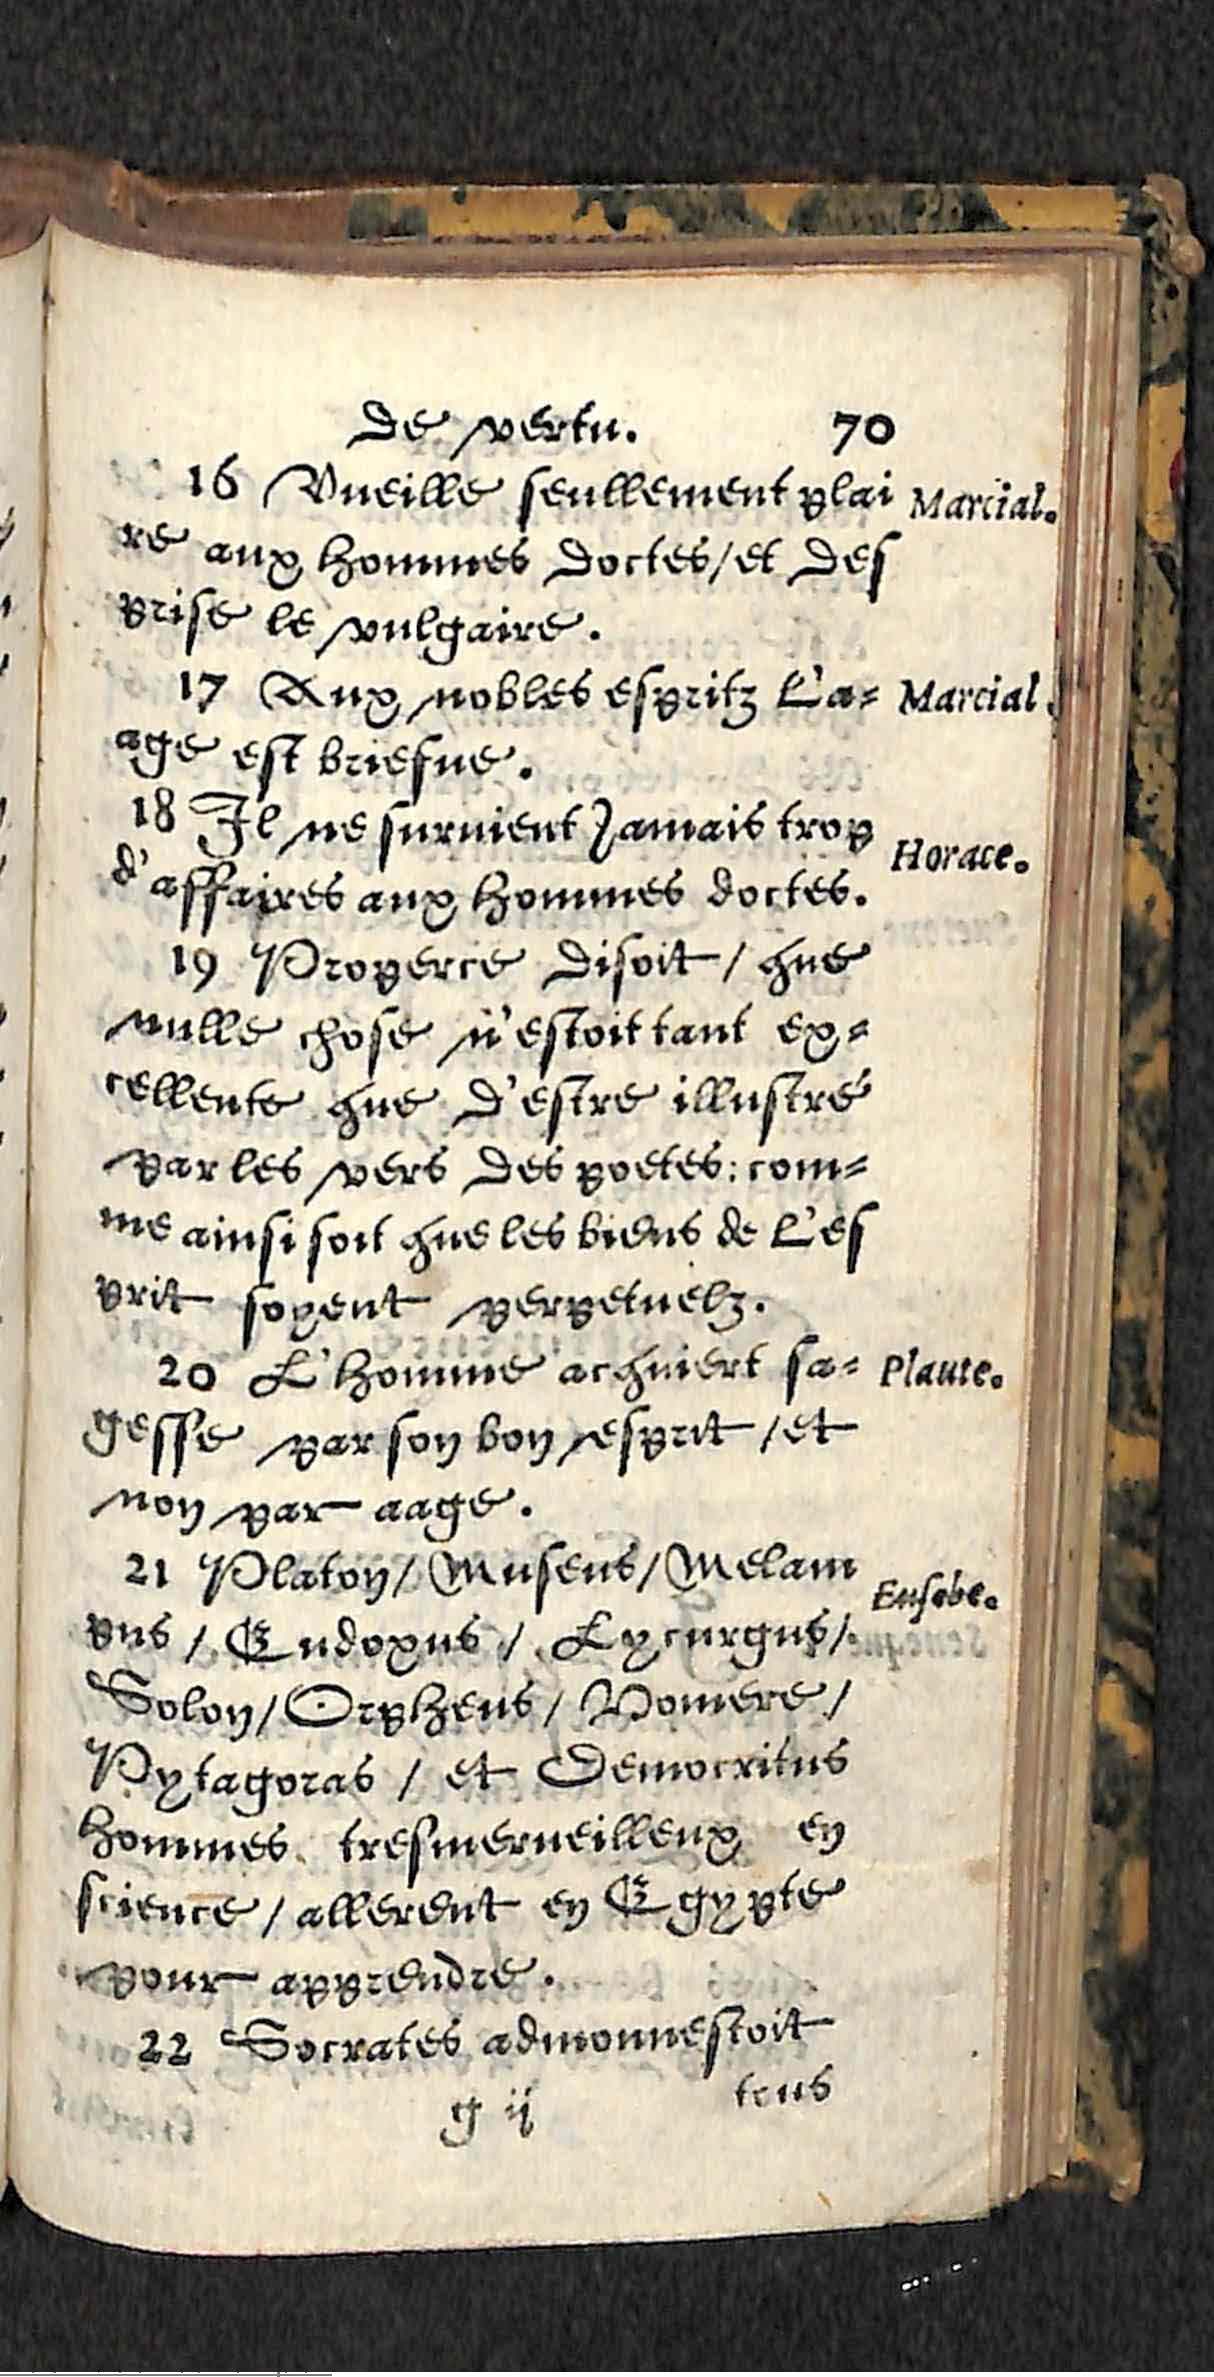 de vertu. 70
16 Vueille seullement plai Marcial.
re aux hommes doctes/et des
prise le vulgaire.
17 Aux nobles espritz l'a= Marcial.
age est briefue.
18 Il ne suruient Jamais trop
Horace.
d'affaires aux hommes doctes.
19 Properce disoit / que
nulle chose n'estoit tant ex=
cellente que d'estre illustré
par les vers des poetes: com=
me ainsi soit que les biens de l'es
prit soyent perpetuelz.
20 L'homme acquiert sa= Plaute.
gesse par son bon esprit /et
non par aage.
21 Platon/ Museus/ Melam
Eusebe.
pus / Eudoxus / Lycurgus/
Solon/ Orpheus / Homere /
Pytagoras / et Democritus
hommes tresmerueilleux en
science / allerent en Egypte
pour apprendre.
22 Socrates admonnestoit
g ij tous